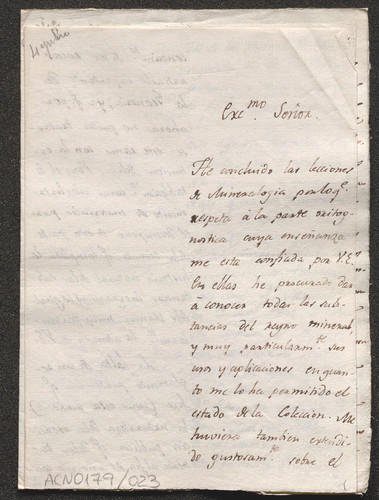 4 julio
Exc.mo Señor.
He concluido las lecciones
de Mineralogia por lo q.e
respeta à la parte orictog-
nostica cuya enseñanza
me esta confiada por V.E.
En ellas he procurado dar
à conocer todas las subs-
tancias del reyno mineral,
y muy particularm.te sus
usos y aplicaciones en quan-
to me lo ha permitido el
estado de la Coleccion. Me
huviera tambien extendi-
do gustosam.te sobre el
ACN0179/023